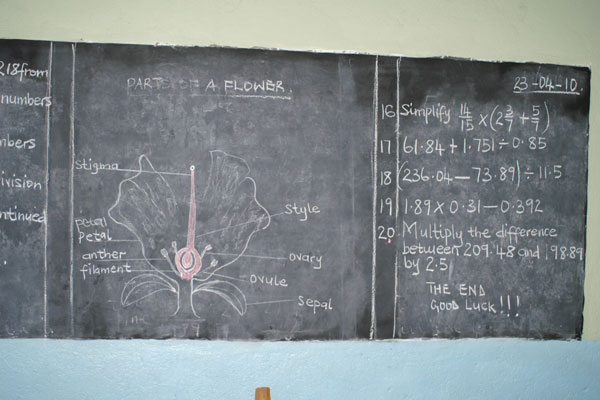 218 from
numbers
mbers
ivision
ntinued
PARTS OF A FLOWER.
Stigma
Style
petal
anther
filament
ovary
ovule
Sepal
23-04-10.
16 Simplify 14/15 × (2 3/7 + 5/7)
17 61.84 + 1.751 ÷ 0.85
18 (236.04 — 73.89) ÷ 11.5
19 1.89 × 0.31 — 0.392
20. Multiply the difference
between 209.48 and 198.89
by 2.5
THE END
GOOD LUCK!!!